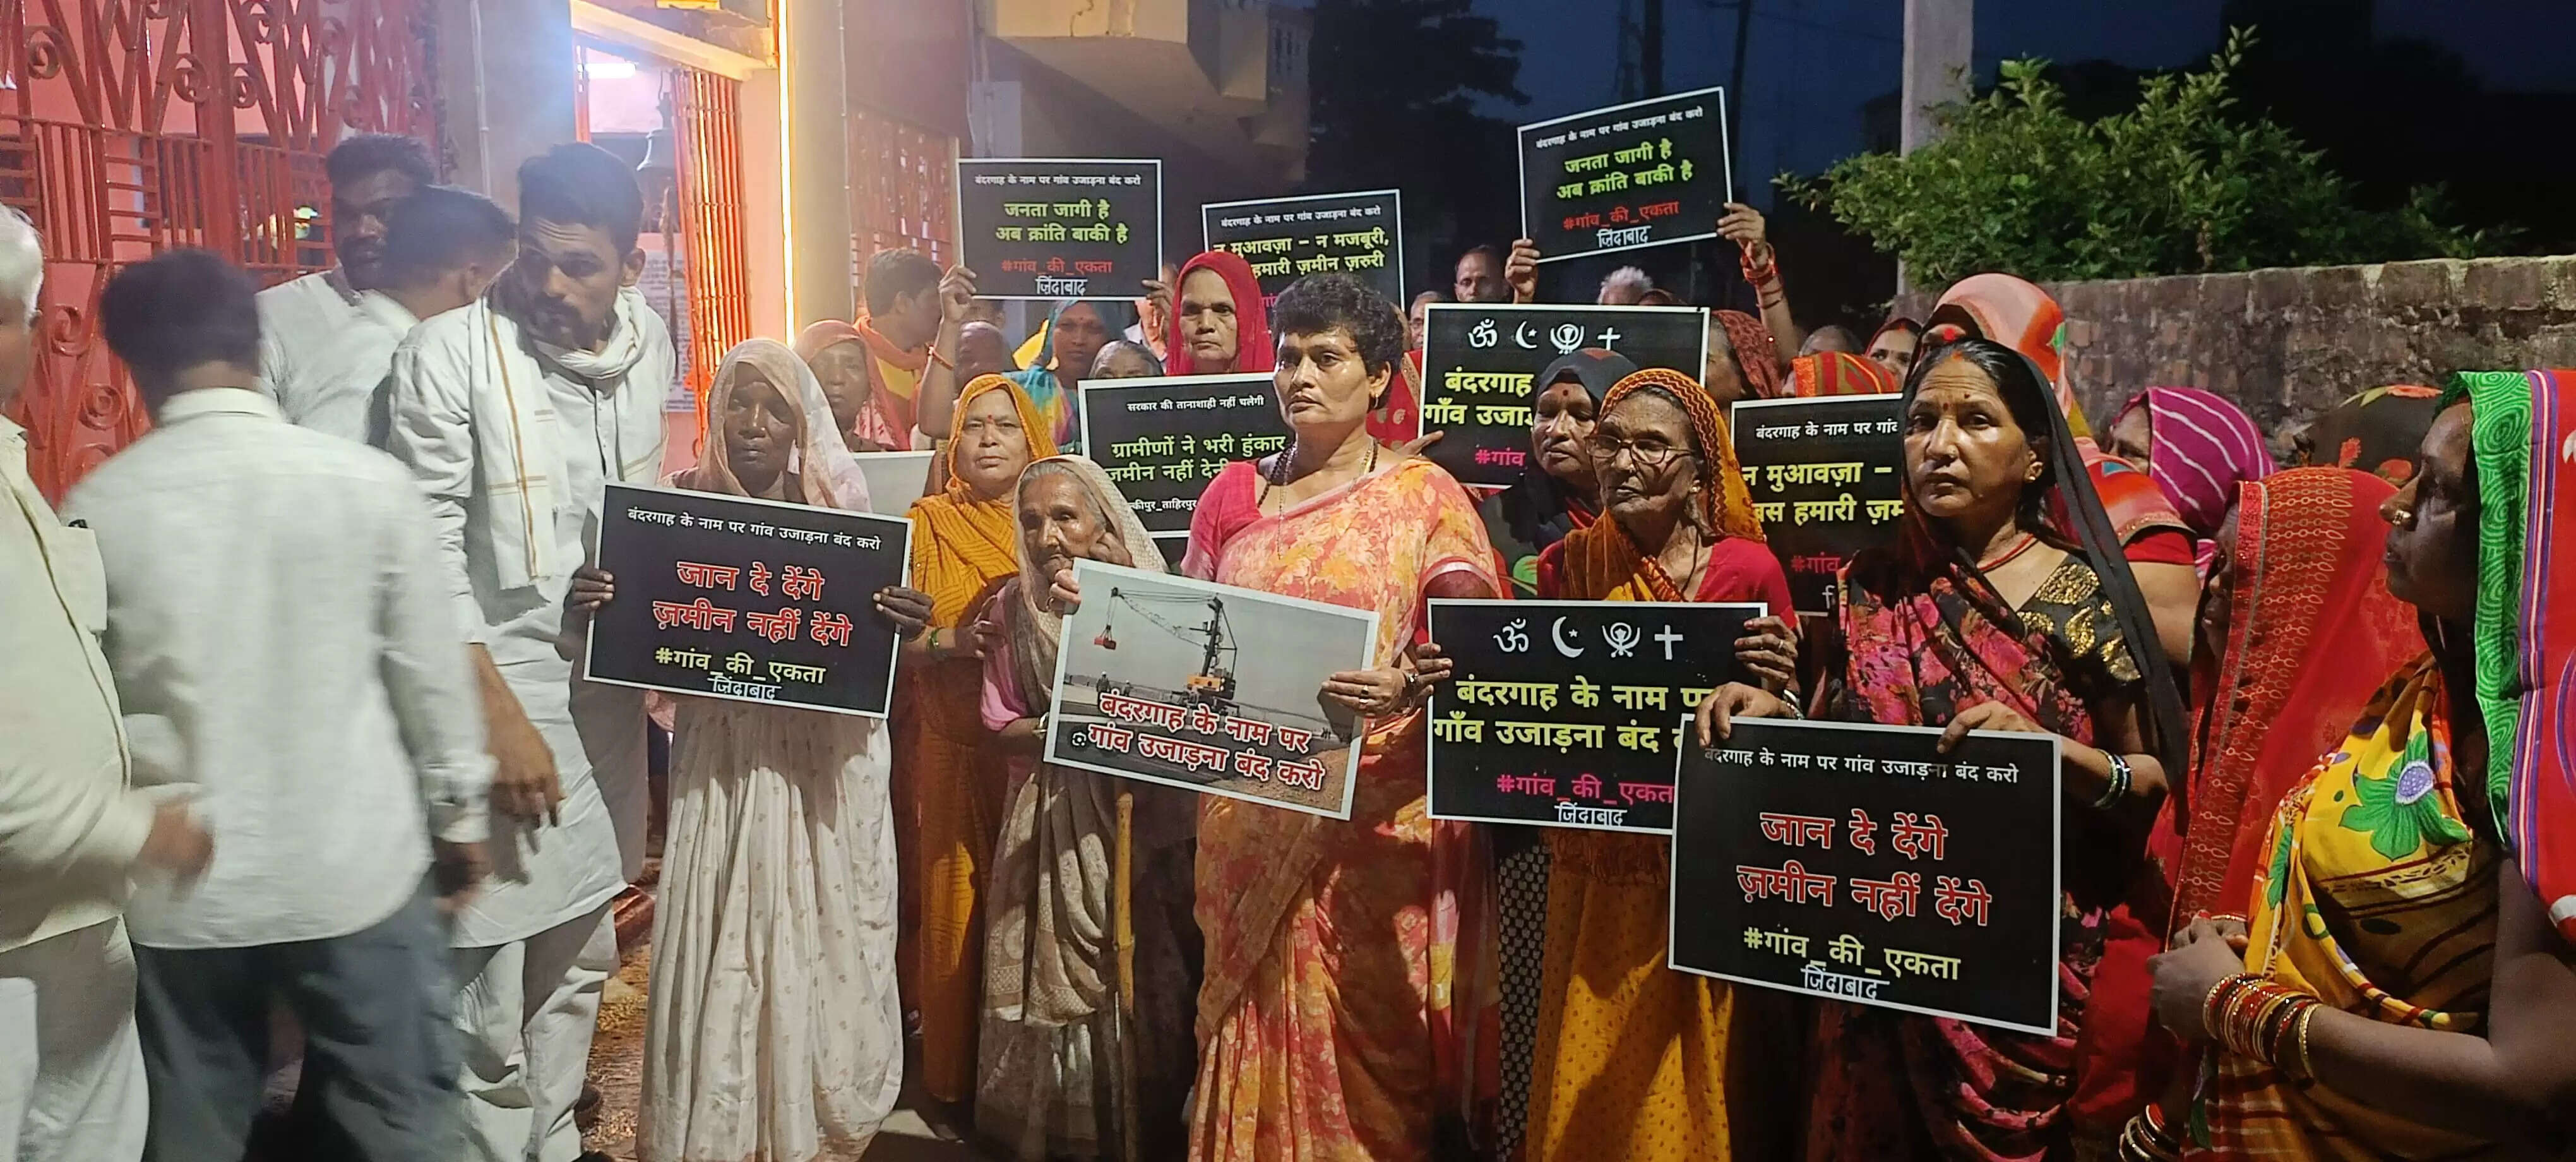 बंदरगाह के नाम पर गांव उजाड़ना बंद करो
जनता जागी है
अब क्रांति बाकी है
#गांव_की_एकता
जिंदाबाद
बंदरगाह के नाम पर गांव उजाड़ना बंद करो
न मुआवज़ा – न मजबूरी,
हमारी ज़मीन ज़रुरी
बंदरगाह के नाम पर गांव उजाड़ना बंद करो
जनता जागी है
अब क्रांति बाकी है
#गांव_की_एकता
जिंदाबाद
सरकार की तानाशाही नहीं चलेगी
ग्रामीणों ने भरी हुंकार
ज़मीन नहीं
ताहिरपुर
बंदरगाह
गाँव
#गांव
बंदरगाह के नाम पर गांव
न मुआवज़ा –
हमारी
#गांव
बंदरगाह के नाम पर गांव उजाड़ना बंद करो
जान दे देंगे
ज़मीन नहीं देंगे
#गांव_की_एकता
जिंदाबाद
बंदरगाह के नाम पर
गांव उजाड़ना बंद करो
बंदरगाह के नाम
गाँव उजाड़ना बंद
#गांव_की_एकता
जिंदाबाद
बंदरगाह के नाम पर गांव उजाड़ना बंद करो
जान दे देंगे
ज़मीन नहीं देंगे
#गांव_की_एकता
जिंदाबाद